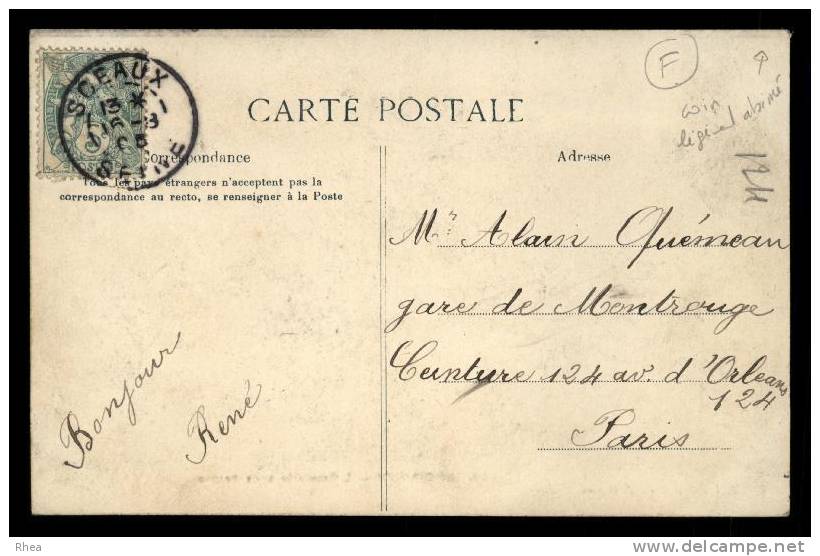 F
coin
légmt abimé
124
SCEAUX
SEINE
CARTE POSTALE
Correspondance
Adresse
Tous les pays étrangers n'acceptent pas la
correspondance au recto, se renseigner à la Poste
Mr Alain Quémeau
gare de Montrouge
Ceinture 124 av. d'Orleans
124
Paris
Bonjour
René
Rhea
www.delcampe.net